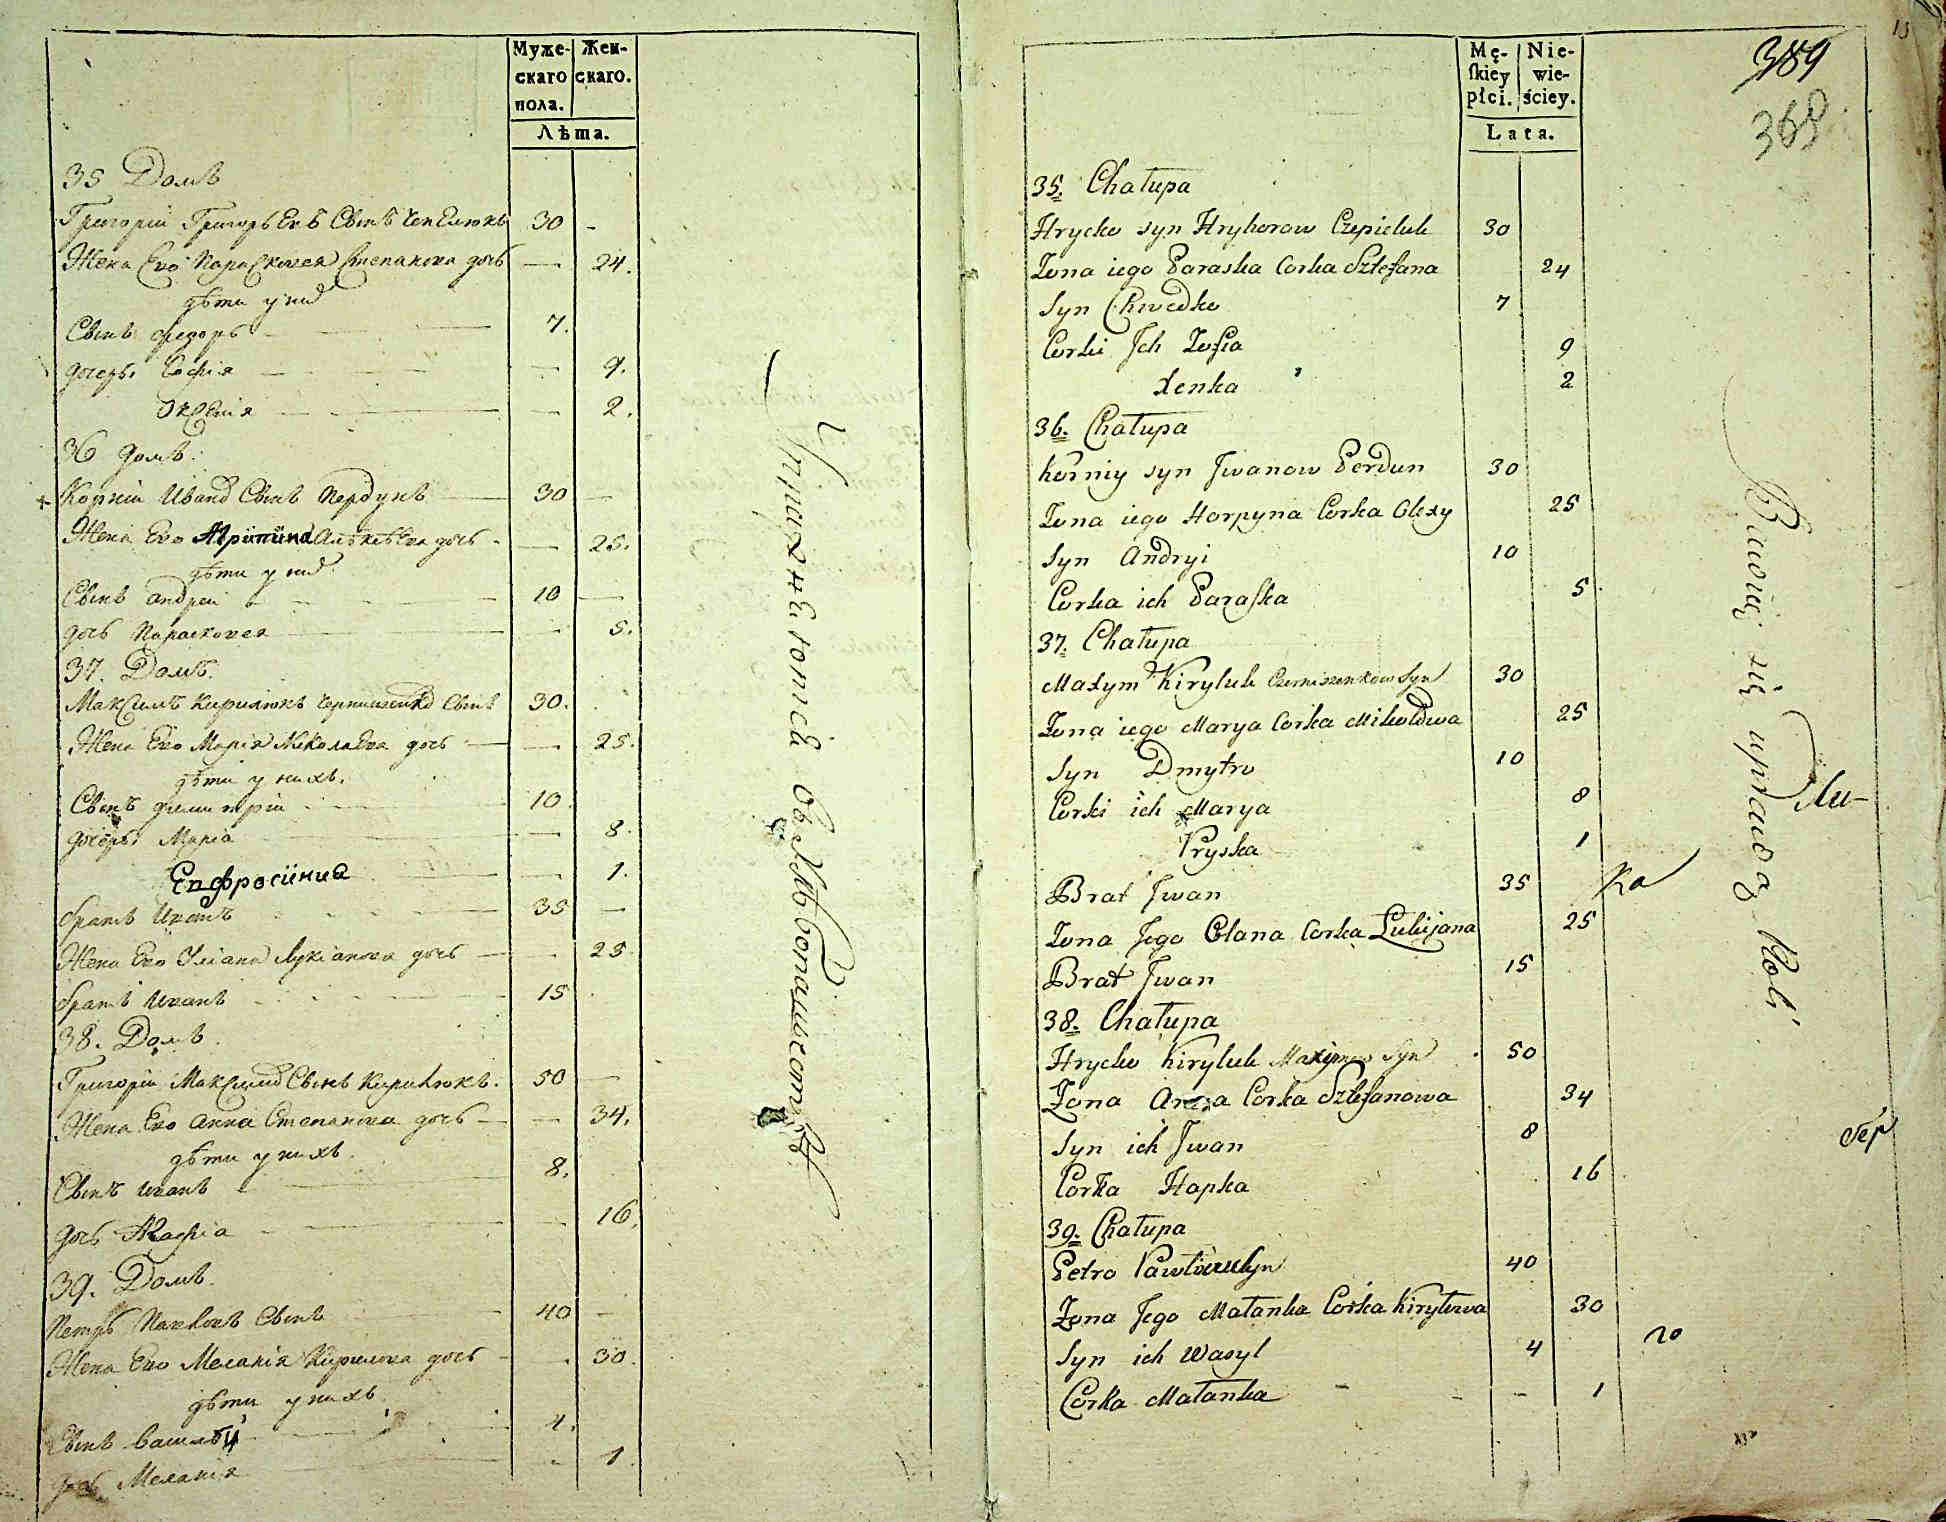 Муже-
скаго
пола.
Жен-
скаго.
Лѣта.
35 Домъ
Григорій Григорьевъ Сынъ Чепелюкъ 30 -
Жена Его Парасковея Степанова дочь — 24.
дѣти у них
Сынъ Федоръ 7.
дочерь: Софія — 9.
Оксенія — 2.
36 домъ.
Корній Иванов Сынъ Пердунъ 30 —
Жена Его Агрипина Алексѣева дочь — 25.
дѣти у них
Сынъ Андрей 10 —
дочь Парасковея - 5.
37. Домъ.
Максимъ Кирилюкъ Сынъ 30.
Жена Его Марія Николаева дочь — 25.
дѣти у нихъ.
Сынъ Димитрій 10
дочерь: Марія — 8.
Евфросиния — 1.
братъ Иванъ 35 —
Жена Его Уліана Лукіанова дочь - 25
братъ Иванъ 15
38. Домъ.
Григорій Максимов Сынъ Кирилюкъ. 50 —
Жена Его Анна Степанова дочь — 34.
дѣти у нихъ.
Сынъ Иванъ 8.
дочь Агафіа — 16.
39. Домъ.
Петръ Павловъ Сынъ 40 -
Жена Его Меланія Кирилова дочь - 30.
дѣти у нихъ
Сынъ Василій 4.
дочь Меланія - 1
Упражняются въ хлѣбопашествѣ
Mę-
skiey
płci.
Nie-
wie-
ściey.
Lata.
15
384
368
35. Chałupa
Hrycko syn Hryhorow Czepieluk 30
Zona iego Paraska Corka Sztefana 24
Syn Chwedko 7
Corki Ich Zofia 9
Xenka 2
36. Chałupa
Korniy syn Iwanow Perdun 30
Zona iego Horpyna Corka Olexy 25
Syn Andryi 10
Corka ich Paraska 5
37. Chałupa
Maxym Kiryluk Czerniszenkow Syn 30
Zona iego Marya Corka Mikołowa 25
Syn Dmytro 10
Corki ich Marya 8
Pryska 1
Brat Iwan 35
Zona Jego Olana Corka Lukijana 25
Brat Iwan 15
38. Chałupa
Hrycko Kiryluk Maxymow Syn 50
Zona Anna Corka Sztefanowa 34
Syn ich Iwan 8
Corka Hapka 16
39. Chałupa
Petro Pawłow Syn 40
Zona Jego Małanka Corka Kiryłowa 30
Syn ich Wasyl 4
Corka Małanka - - 1
Bawią się uprawą Roli
Ка
го